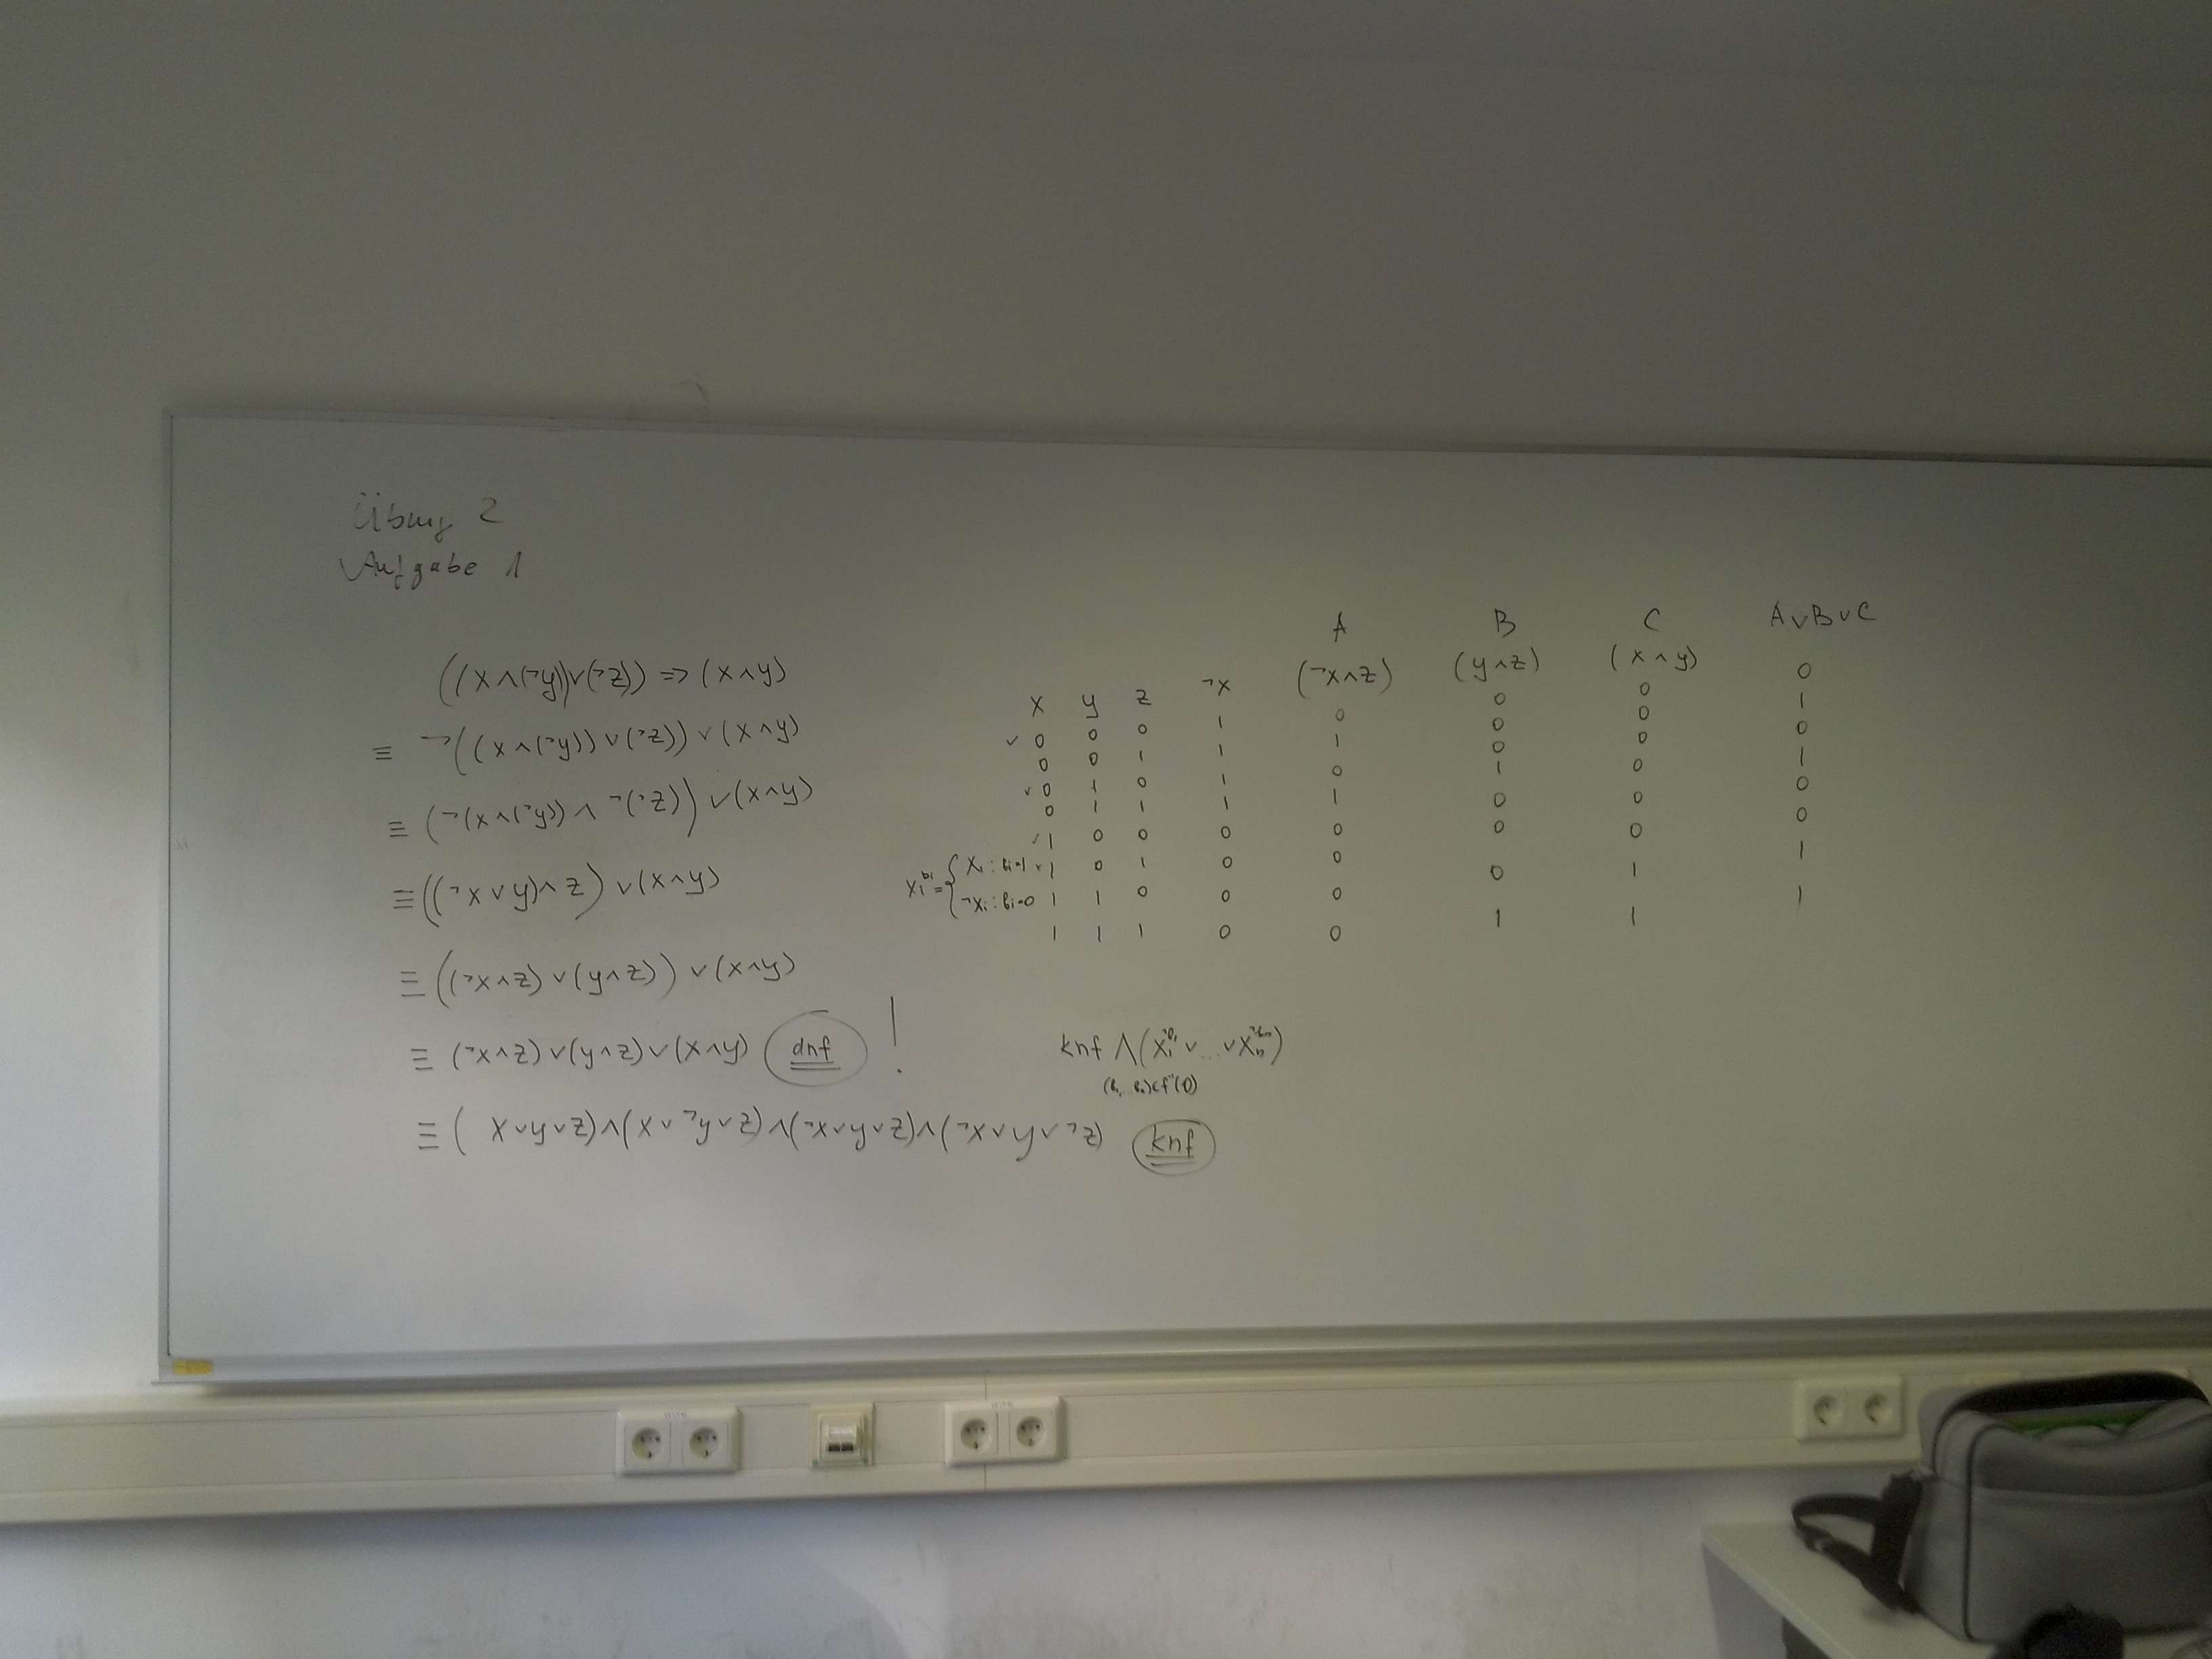 Übung 2
Aufgabe 1
((x∧(¬y))∨(¬z)) => (x∧y)
≡ ¬((x∧(¬y))∨(¬z))∨(x∧y)
≡ (¬(x∧(¬y))∧¬(¬z))∨(x∧y)
≡ ((¬x∨y)∧z)∨(x∧y)
≡ ((¬x∧z)∨(y∧z))∨(x∧y)
≡ (¬x∧z)∨(y∧z)∨(x∧y) dnf !
≡ (x∨y∨z)∧(x∨¬y∨z)∧(¬x∨y∨z)∧(¬x∨y∨¬z) knf
A B C A∨B∨C
x y z ¬x (¬x∧z) (y∧z) (x∧y)
✓ 0 0 0 1 0 0 0 0
0 0 1 1 1 0 0 1
✓ 0 1 0 1 0 0 0 0
0 1 1 1 1 1 0 1
✓ 1 0 0 0 0 0 0 0
✓ 1 0 1 0 0 0 0 0
1 1 0 0 0 0 1 1
1 1 1 0 0 1 1 1
xᵢ^bᵢ = { xᵢ : bᵢ=1
¬xᵢ : bᵢ=0
knf ∧(x₁^¬b₁ ∨ ... ∨ xₙ^¬bₙ)
(b₁ bₙ)∈f⁻¹(0)